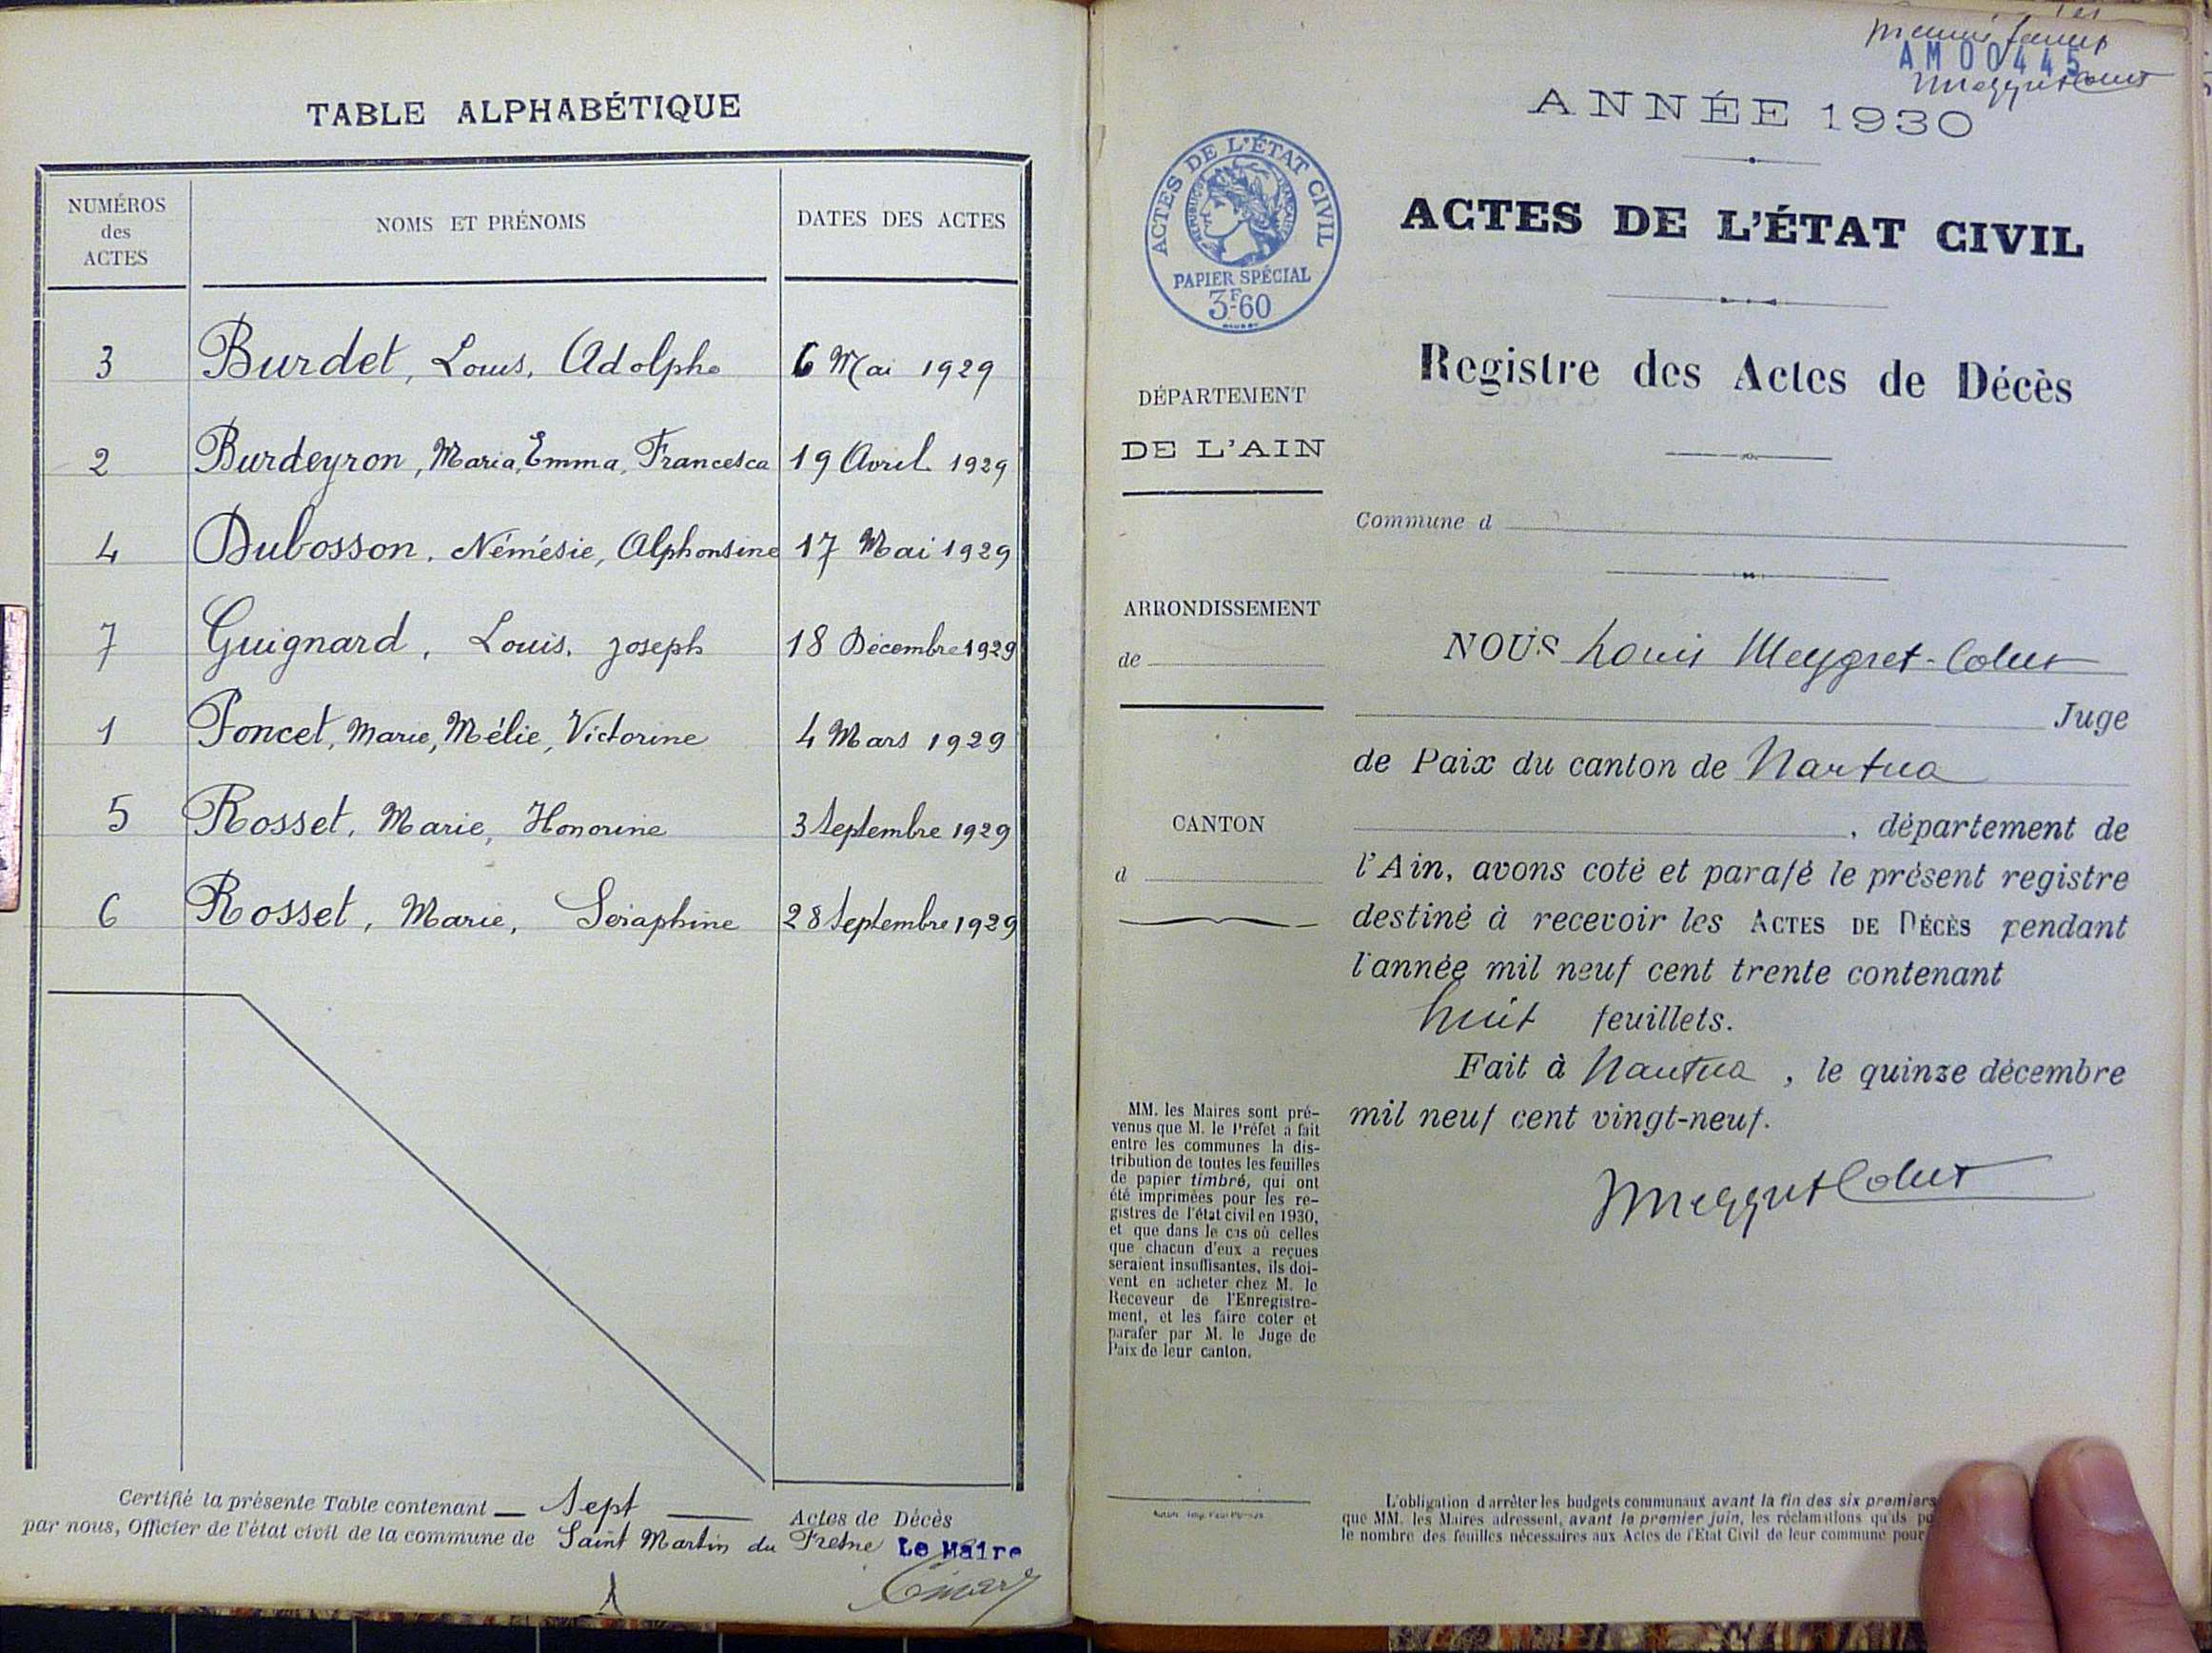 TABLE ALPHABÉTIQUE
NUMÉROS des ACTES NOMS ET PRÉNOMS DATES DES ACTES
3 Burdet, Louis, Adolphe 6 Mai 1929
2 Burdeyron, Maria, Emma, Francesca 19 Avril 1929
4 Dubosson, Némésie, Alphonsine 17 Mai 1929
7 Guignard, Louis, Joseph 18 Décembre 1929
1 Poncet, Marie, Mélie, Victorine 4 Mars 1929
5 Rosset, Marie, Honorine 3 Septembre 1929
6 Rosset, Marie, Séraphine 28 Septembre 1929
Certifié la présente Table contenant Sept Actes de Décès
par nous, Officier de l'état civil de la commune de Saint Martin du Fresne Le Maire
AM00445
ANNÉE 1930
ACTES DE L'ÉTAT CIVIL
RÉPUBLIQUE FRANÇAISE
PAPIER SPÉCIAL
3F60
ACTES DE L'ÉTAT CIVIL
Registre des Actes de Décès
DÉPARTEMENT
DE L'AIN
Commune d
ARRONDISSEMENT
de
CANTON
d
NOUS Louis Meygret-Collet
Juge
de Paix du canton de Nantua
, département de
l'Ain, avons coté et parafé le présent registre
destiné à recevoir les ACTES DE DÉCÈS pendant
l'année mil neuf cent trente contenant
huit feuillets.
Fait à Nantua, le quinze décembre
mil neuf cent vingt-neuf.
MM. les Maires sont pré-
venus que M. le Préfet a fait
entre les communes la dis-
tribution de toutes les feuilles
de papier timbré, qui ont
été imprimées pour les re-
gistres de l'état civil en 1930,
et que dans le cas où celles
que chacun d'eux a reçues
seraient insuffisantes, ils doi-
vent en acheter chez M. le
Receveur de l'Enregistre-
ment, et les faire coter et
parafer par M. le Juge de
Paix de leur canton.
L'obligation d'arrêter les budgets communaux avant la fin des six premiers
que MM. les Maires adressent, avant le premier juin, les réclamations qu'ils
le nombre des feuilles nécessaires aux Actes de l'Etat Civil de leur commune pour